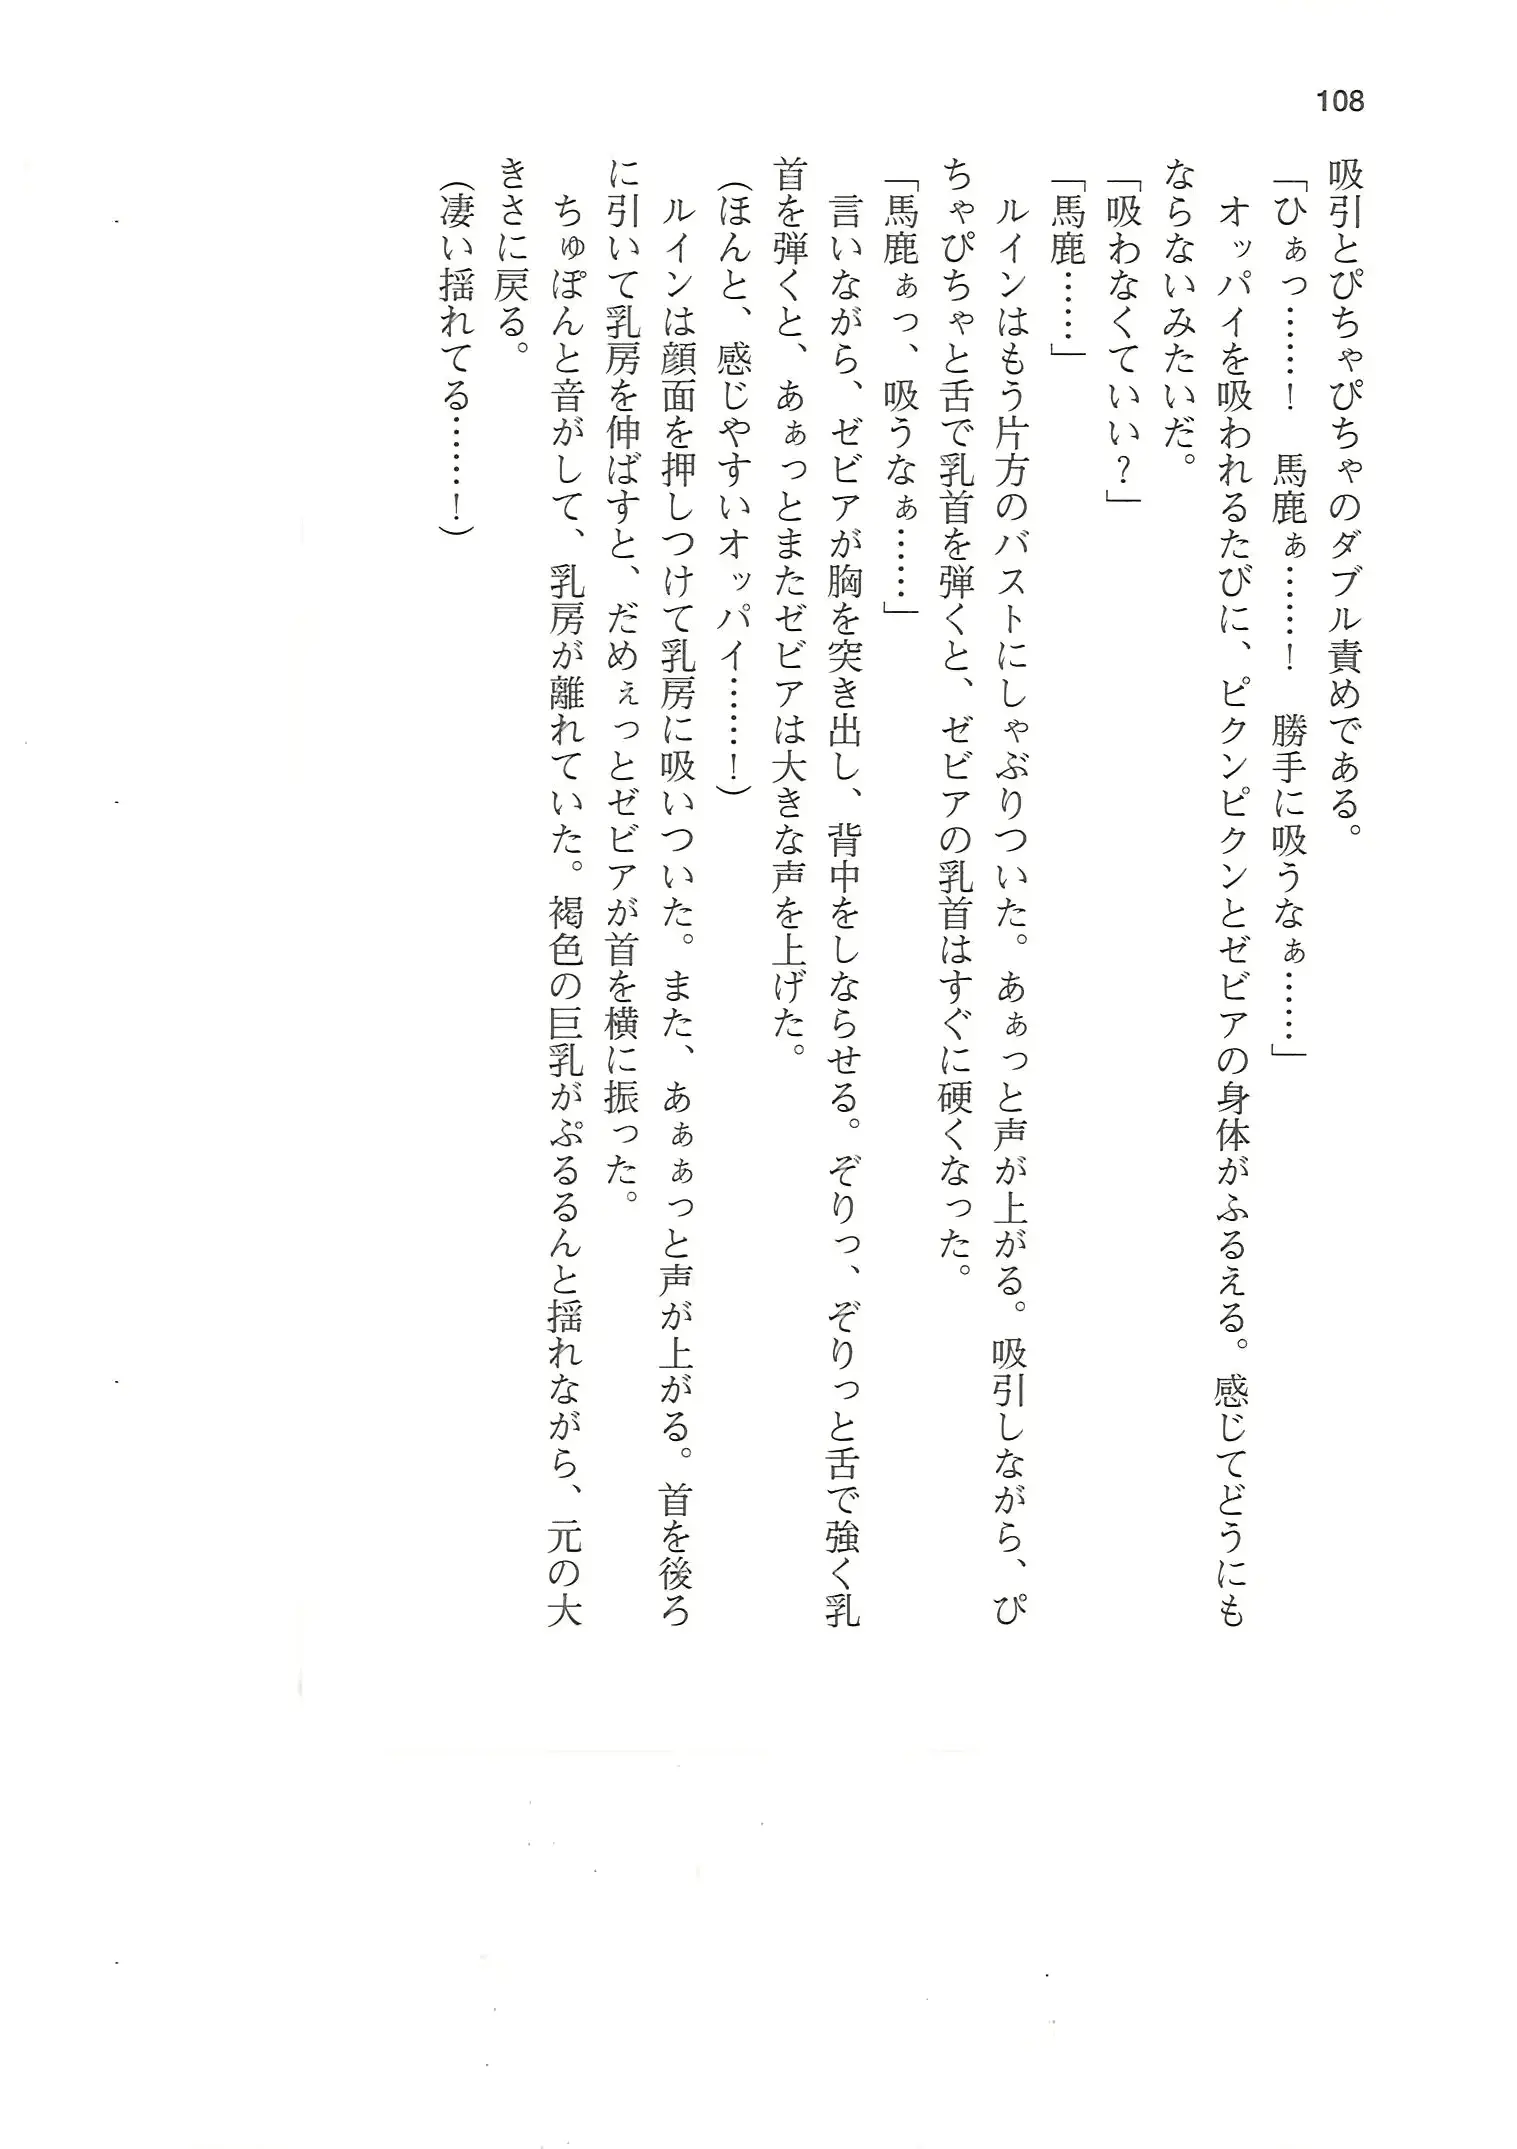 108
吸引とぴちゃぴちゃのダブル責めである。
「ひぁっ……！　馬鹿ぁ……！　勝手に吸うなぁ……」
　オッパイを吸われるたびに、ピクンピクンとゼビアの身体がふるえる。感じてどうにも
ならないみたいだ。
「吸わなくていい？」
「馬鹿……」
　ルインはもう片方のバストにしゃぶりついた。あぁっと声が上がる。吸引しながら、ぴ
ちゃぴちゃと舌で乳首を弾くと、ゼビアの乳首はすぐに硬くなった。
「馬鹿ぁっ、吸うなぁ……」
　言いながら、ゼビアが胸を突き出し、背中をしならせる。ぞりっ、ぞりっと舌で強く乳
首を弾くと、あぁっとまたゼビアは大きな声を上げた。
（ほんと、感じやすいオッパイ……！）
　ルインは顔面を押しつけて乳房に吸いついた。また、あぁぁっと声が上がる。首を後ろ
に引いて乳房を伸ばすと、だめぇっとゼビアが首を横に振った。
　ちゅぽんと音がして、乳房が離れていた。褐色の巨乳がぷるるんと揺れながら、元の大
きさに戻る。
（凄い揺れてる……！）